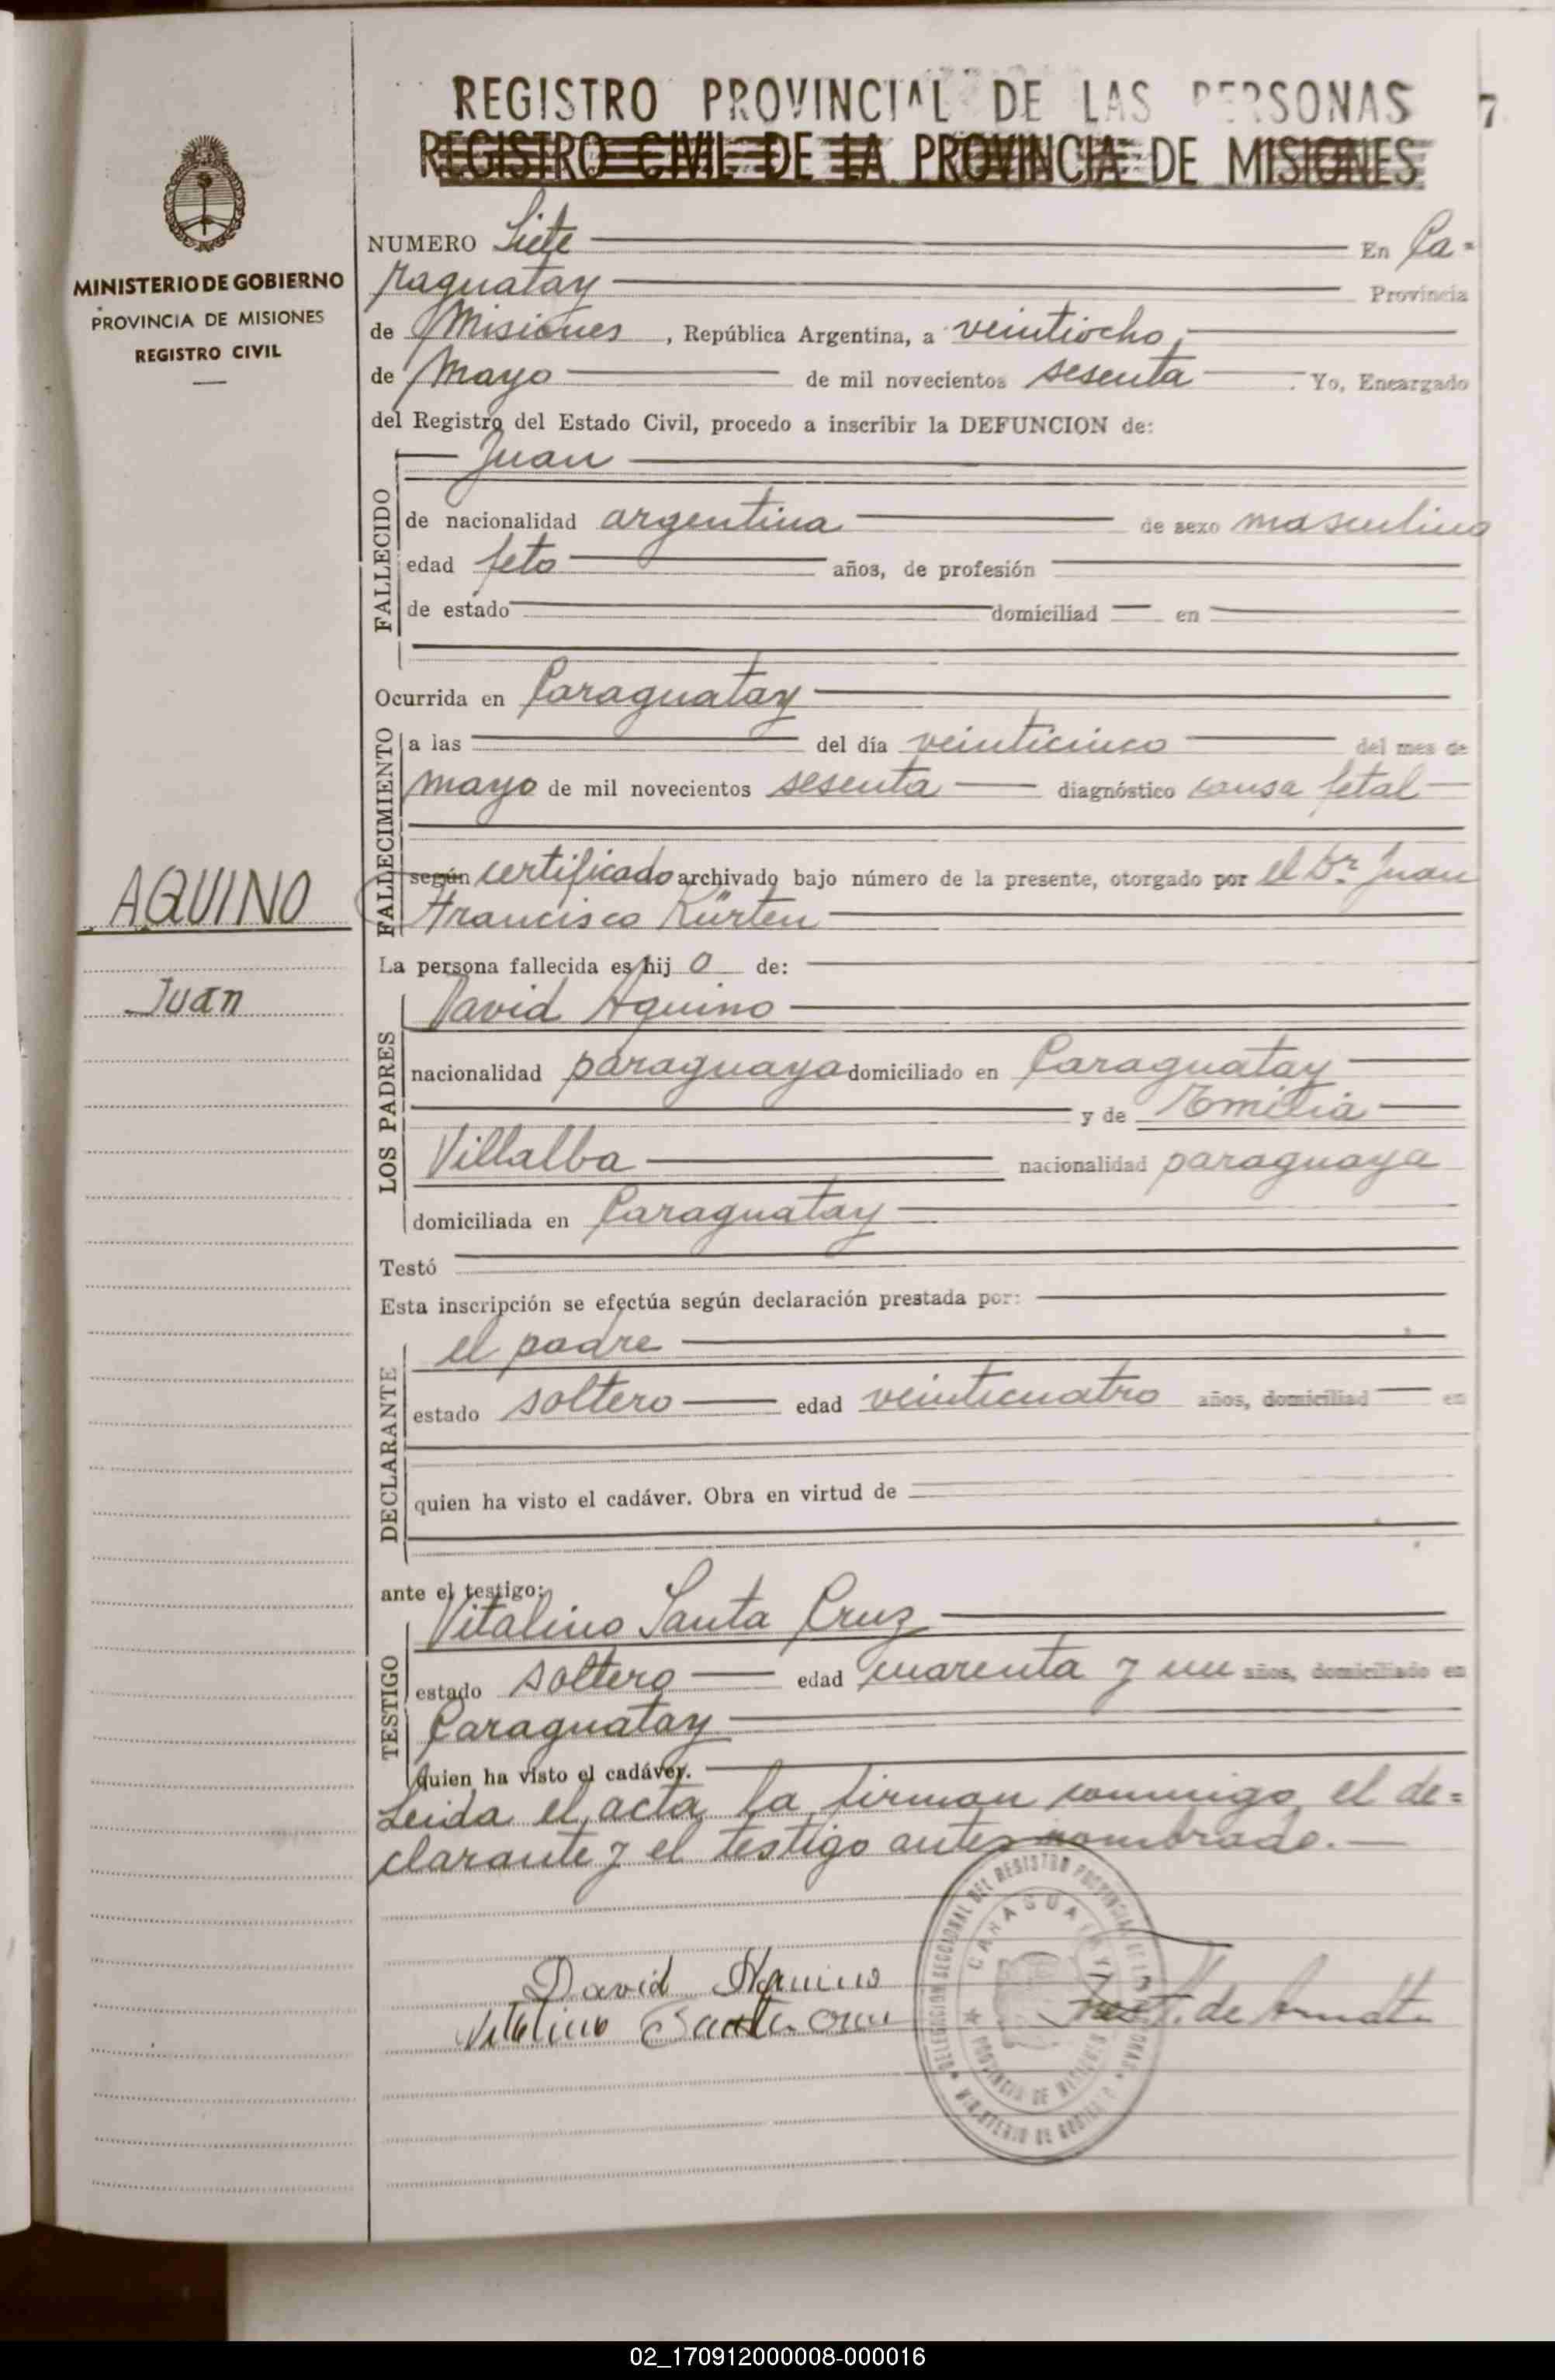 REGISTRO PROVINCIAL DE LAS PERSONAS
7
REGISTRO CIVIL DE LA PROVINCIA DE MISIONES
MINISTERIO DE GOBIERNO
PROVINCIA DE MISIONES
REGISTRO CIVIL
AQUINO
Juan
NUMERO Siete En Ca-
raguatay Provincia
de Misiones, República Argentina, a veintiocho,
de Mayo de mil novecientos sesenta. Yo, Encargado
del Registro del Estado Civil, procedo a inscribir la DEFUNCION de:
FALLECIDO
Juan
de nacionalidad argentina de sexo masculino
edad feto años, de profesión
de estado domiciliad en
Ocurrida en Caraguatay
FALLECIMIENTO
a las del día veinticinco del mes de
mayo de mil novecientos sesenta diagnóstico causa fetal
según certificado archivado bajo número de la presente, otorgado por el Dr. Juan
Francisco Kürten
La persona fallecida es hij o de:
LOS PADRES
David Aquino
nacionalidad paraguaya domiciliado en Caraguatay
y de Emilia
Villalba nacionalidad paraguaya
domiciliada en Caraguatay
Testó
Esta inscripción se efectúa según declaración prestada por:
DECLARANTE
el padre
estado soltero edad veinticuatro años, domiciliad en
quien ha visto el cadáver. Obra en virtud de
ante el testigo:
TESTIGO
Vitalino Santa Cruz
estado soltero edad cuarenta y un años, domiciliado en
Caraguatay
quien ha visto el cadáver.
Leida el acta la firman conmigo el de=
clarante y el testigo antes nombrado.
DELEGACION SECCIONAL DEL REGISTRO PROVINCIAL DE LAS PERSONAS
CARAGUATAY
PROVINCIA DE MISIONES
MINISTERIO DE GOBIERNO
David Aquino
Vitalino Santa Cruz
de Arndt
02_170912000008-000016